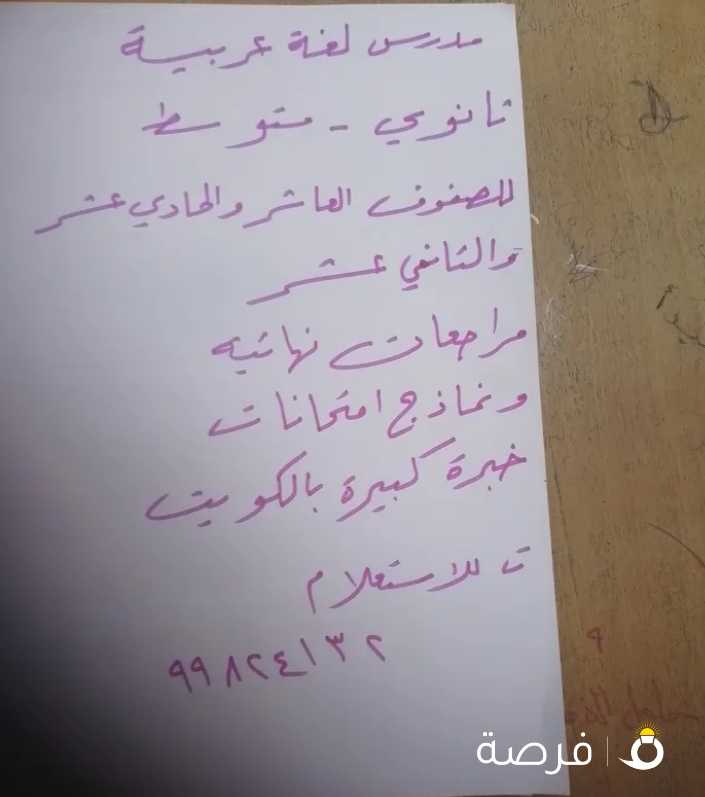 مدرس لغة عربية
ثانوي - متوسط
للصفوف العاشر والحادي عشر
والثاني عشر
مراجعات نهائيه
ونماذج امتحانات
خبرة كبيرة بالكويت
ت للاستعلام
٩٩٨٢٤١٣٢
فرصة